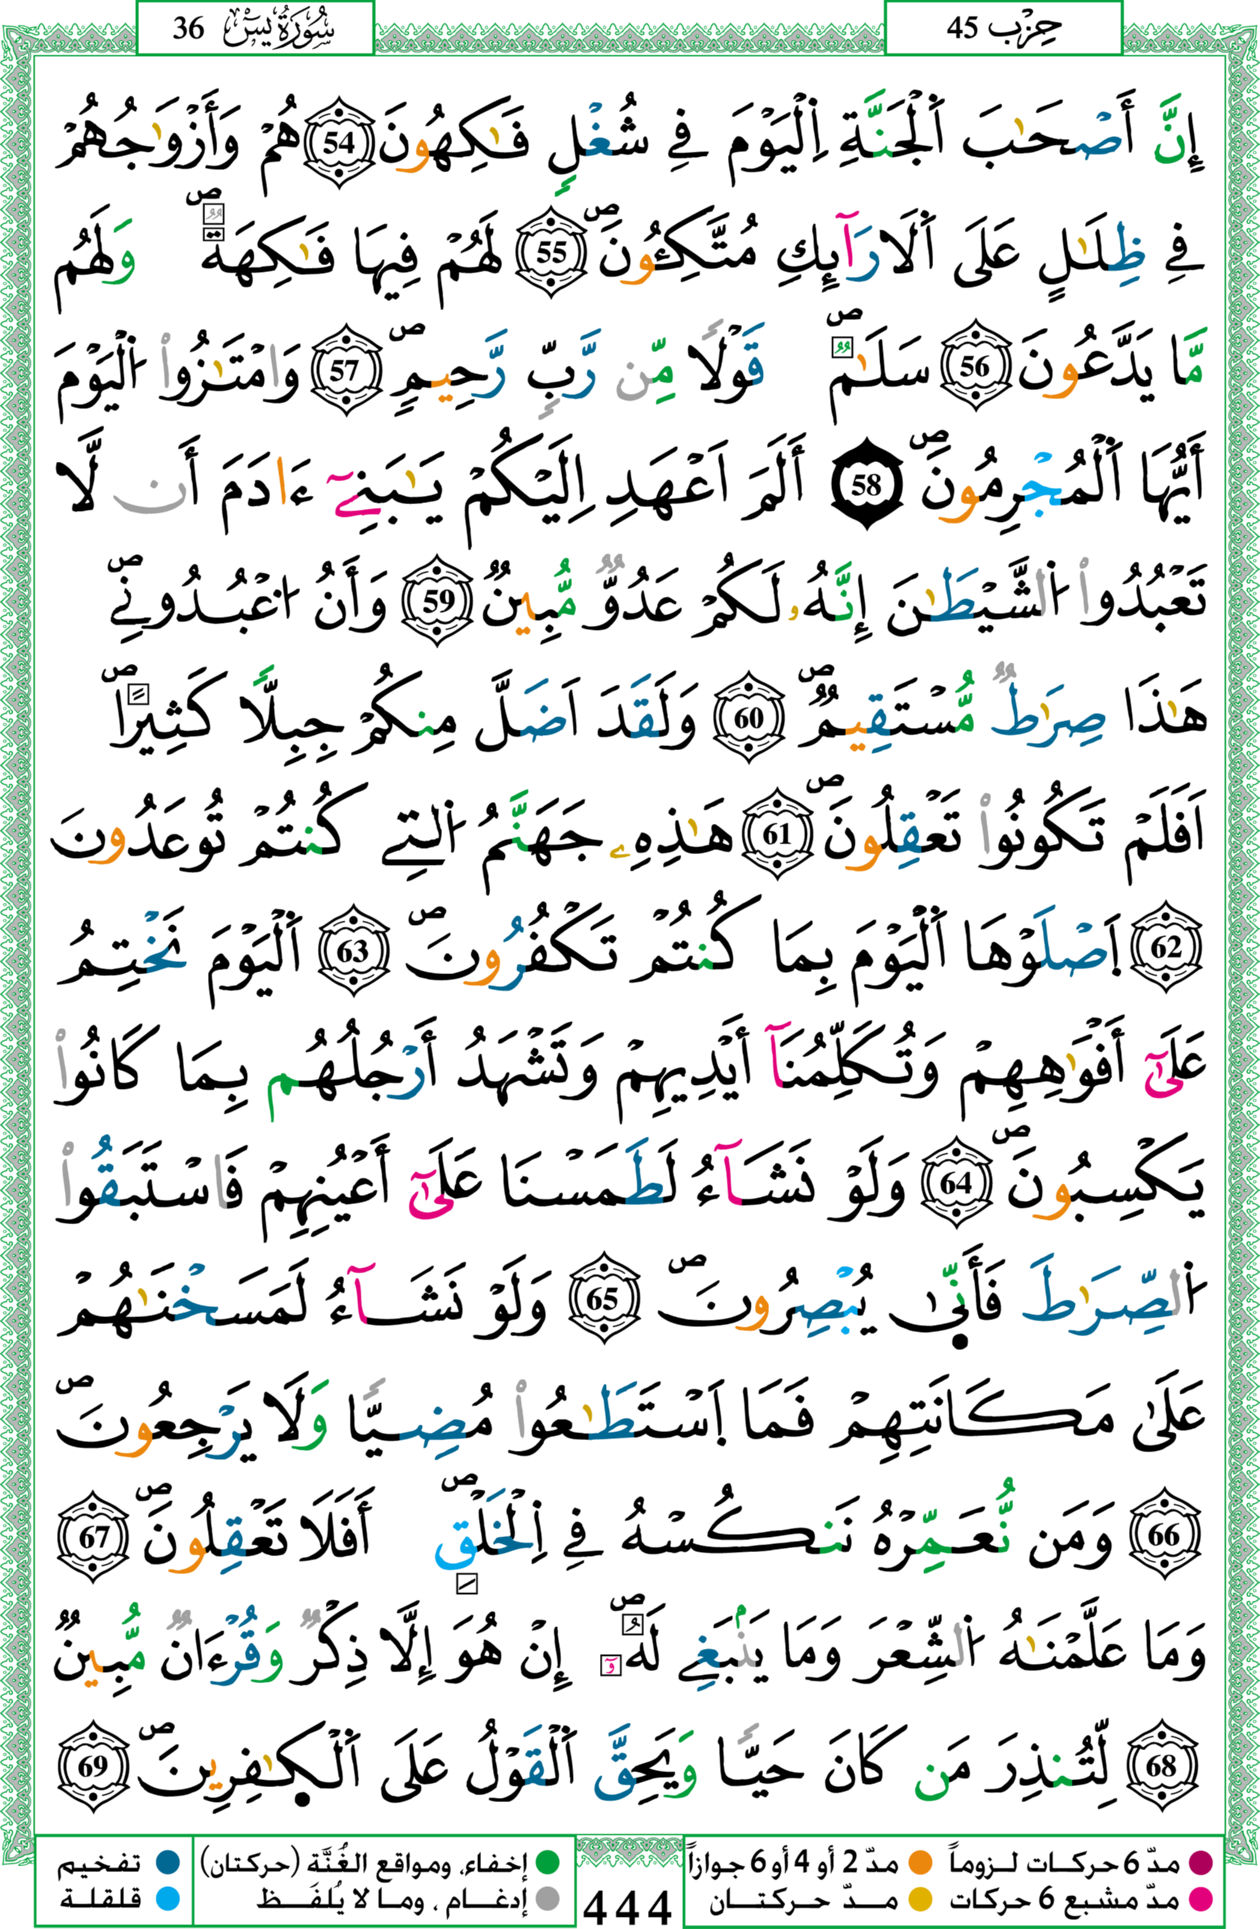 حِزْب 45
سُورَةُ يسٓ 36
إِنَّ أَصْحَٰبَ اَ۬لْجَنَّةِ اِ۬لْيَوْمَ فِے شُغْلٖ فَٰكِهُونَ 54 هُمْ وَأَزْوَٰجُهُمْ
فِے ظِلَٰلٍ عَلَى اَ۬لَارَآئِكِ مُتَّكِـُٔونَۖ 55 لَهُمْ فِيهَا فَٰكِهَةٞۖ وَلَهُم
مَّا يَدَّعُونَۖ 56 سَلَٰمٞۖ قَوْلاٗ مِّن رَّبّٖ رَّحِيمٖۖ 57 وَامْتَٰزُواْ اُ۬لْيَوْمَ
أَيُّهَا اَ۬لْمُجْرِمُونَۖ 58 أَلَمَ اَعْهَدِ اِلَيْكُمْ يَٰبَنِےٓ ءَادَمَ أَن لَّا
تَعْبُدُواْ اُ۬لشَّيْطَٰنَ إِنَّهُۥ لَكُمْ عَدُوّٞ مُّبِينٞ 59 وَأَنُ اُ۟عْبُدُونِےۖ
هَٰذَا صِرَٰطٞ مُّسْتَقِيمٞۖ 60 وَلَقَدَ اَضَلَّ مِنكُمْ جِبِلّاٗ كَثِيراًۖ
اَفَلَمْ تَكُونُواْ تَعْقِلُونَۖ 61 هَٰذِهِۦ جَهَنَّمُ اُ۬لتِے كُنتُمْ تُوعَدُونَ
62 اَ۪صْلَوْهَا اَ۬لْيَوْمَ بِمَا كُنتُمْ تَكْفُرُونَۖ 63 اَ۬لْيَوْمَ نَخْتِمُ
عَلَىٰٓ أَفْوَٰهِهِمْ وَتُكَلِّمُنَآ أَيْدِيهِمْ وَتَشْهَدُ أَرْجُلُهُم بِمَا كَانُواْ
يَكْسِبُونَۖ 64 وَلَوْ نَشَآءُ لَطَمَسْنَا عَلَىٰٓ أَعْيُنِهِمْ فَاسْتَبَقُواْ
اُ۬لصِّرَٰطَ فَأَنّ۪ىٰ يُبْصِرُونَۖ 65 وَلَوْ نَشَآءُ لَمَسَخْنَٰهُمْ
عَلَىٰ مَكَانَتِهِمْ فَمَا اَ۪سْتَطَٰعُواْ مُضِيّاٗ وَلَا يَرْجِعُونَۖ
66 وَمَن نُّعَمِّرْهُ نَنكُسْهُ فِے اِ۬لْخَلْقِۖ أَفَلَا تَعْقِلُونَۖ 67
وَمَا عَلَّمْنَٰهُ اُ۬لشِّعْرَ وَمَا يَنۢبَغِے لَهُۥٓۖ إِنْ هُوَ إِلَّا ذِكْرٞ وَقُرْءَانٞ مُّبِينٞ
68 لِّتُنذِرَ مَن كَانَ حَيّاٗ وَيَحِقَّ اَ۬لْقَوْلُ عَلَى اَ۬لْكٰ۪فِرِينَۖ 69
مدّ 6 حركات لـزوماً مدّ 2 أو 4 أو 6 جوازاً إخفاء، ومواقع الغُنَّة (حركتان) تفخيم
مدّ مشبع 6 حركات مـدّ حـركتـان إدغـام ، ومـا لا يُلفَـظ قلقلة
444